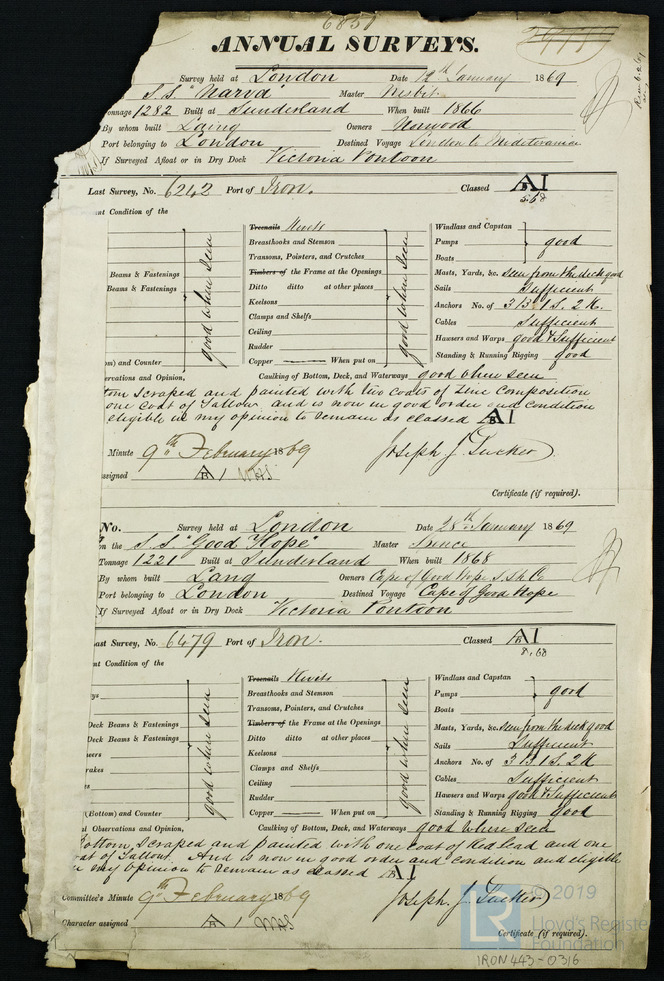 6851
ANNUAL SURVEYS.
Survey held at London Date 12th January 1869
S.S. "Narva" Master Nesbit
onnage 1282 Built at Sunderland When built 1866
By whom built Laing Owners Norwood
Port belonging to London Destined Voyage London to Mediteranean
If Surveyed Afloat or in Dry Dock Victoria Pontoon
Rem 6.2.69
Last Survey, No. 6242 Port of Iron. Classed A B A1
5.68
nt Condition of the
Treenails Rivets
Windlass and Capstan
Breasthooks and Stemson
Pumps good
Transoms, Pointers, and Crutches
Boats
Beams & Fastenings
Timbers of the Frame at the Openings
Masts, Yards, &c. seen from the deck good
Beams & Fastenings
Ditto ditto at other places
Sails Sufficient
Keelsons
Anchors No. of 3 B. 1 S. 2 K.
Clamps and Shelfs
Cables Sufficient
Ceiling
Hawsers and Warps good & Sufficient
Rudder
Standing & Running Rigging good
om) and Counter
Copper When put on
good where seen
good where seen
ervations and Opinion,
Caulking of Bottom, Deck, and Waterways good where seen
tom scraped and painted with two coats of Zinc Composition
one Coat of Tallow. and is now in good order and condition
eligible in my opinion to remain as classed A B A1
Minute 9th February 1869 Joseph J. Tucker
ssigned A B 1 WHS
Certificate (if required).
No. Survey held at London Date 28th January 1869
n the S.S. "Good Hope" Master
Tonnage 1221 Built at Sunderland When built 1868
By whom built Lang Owners Cape of Good Hope S. Sh. Co
Port belonging to London Destined Voyage Cape of Good Hope
If Surveyed Afloat or in Dry Dock Victoria Pontoon
ast Survey, No. 6479 Port of Iron. Classed A B A1
8.68
nt Condition of the
Treenails Rivets
Windlass and Capstan
ys
Breasthooks and Stemson
Pumps good
Transoms, Pointers, and Crutches
Boats
Deck Beams & Fastenings
Timbers of the Frame at the Openings
Masts, Yards, &c. seen from the deck good
Deck Beams & Fastenings
Ditto ditto at other places
Sails Sufficient
eers
Keelsons
Anchors No. of 3 B. 1 S. 2 K
rakes
Clamps and Shelfs
Cables Sufficient
Ceiling
Hawsers and Warps good & Sufficient
Rudder
Standing & Running Rigging good
(Bottom) and Counter
Copper When put on
good where seen
good where seen
al Observations and Opinion,
Caulking of Bottom, Deck, and Waterways good where seen
ottom scraped and painted with one coat of Red Lead and one
oat of Tallow. And is now in good order and condition and eligible
n my opinion to remain as classed A B A1
Committee's Minute 9th February 1869 Joseph J. Tucker
Character assigned A B 1 WHS
Certificate (if required).
LR © 2019
Lloyd's Register
Foundation
IRON 443-0316